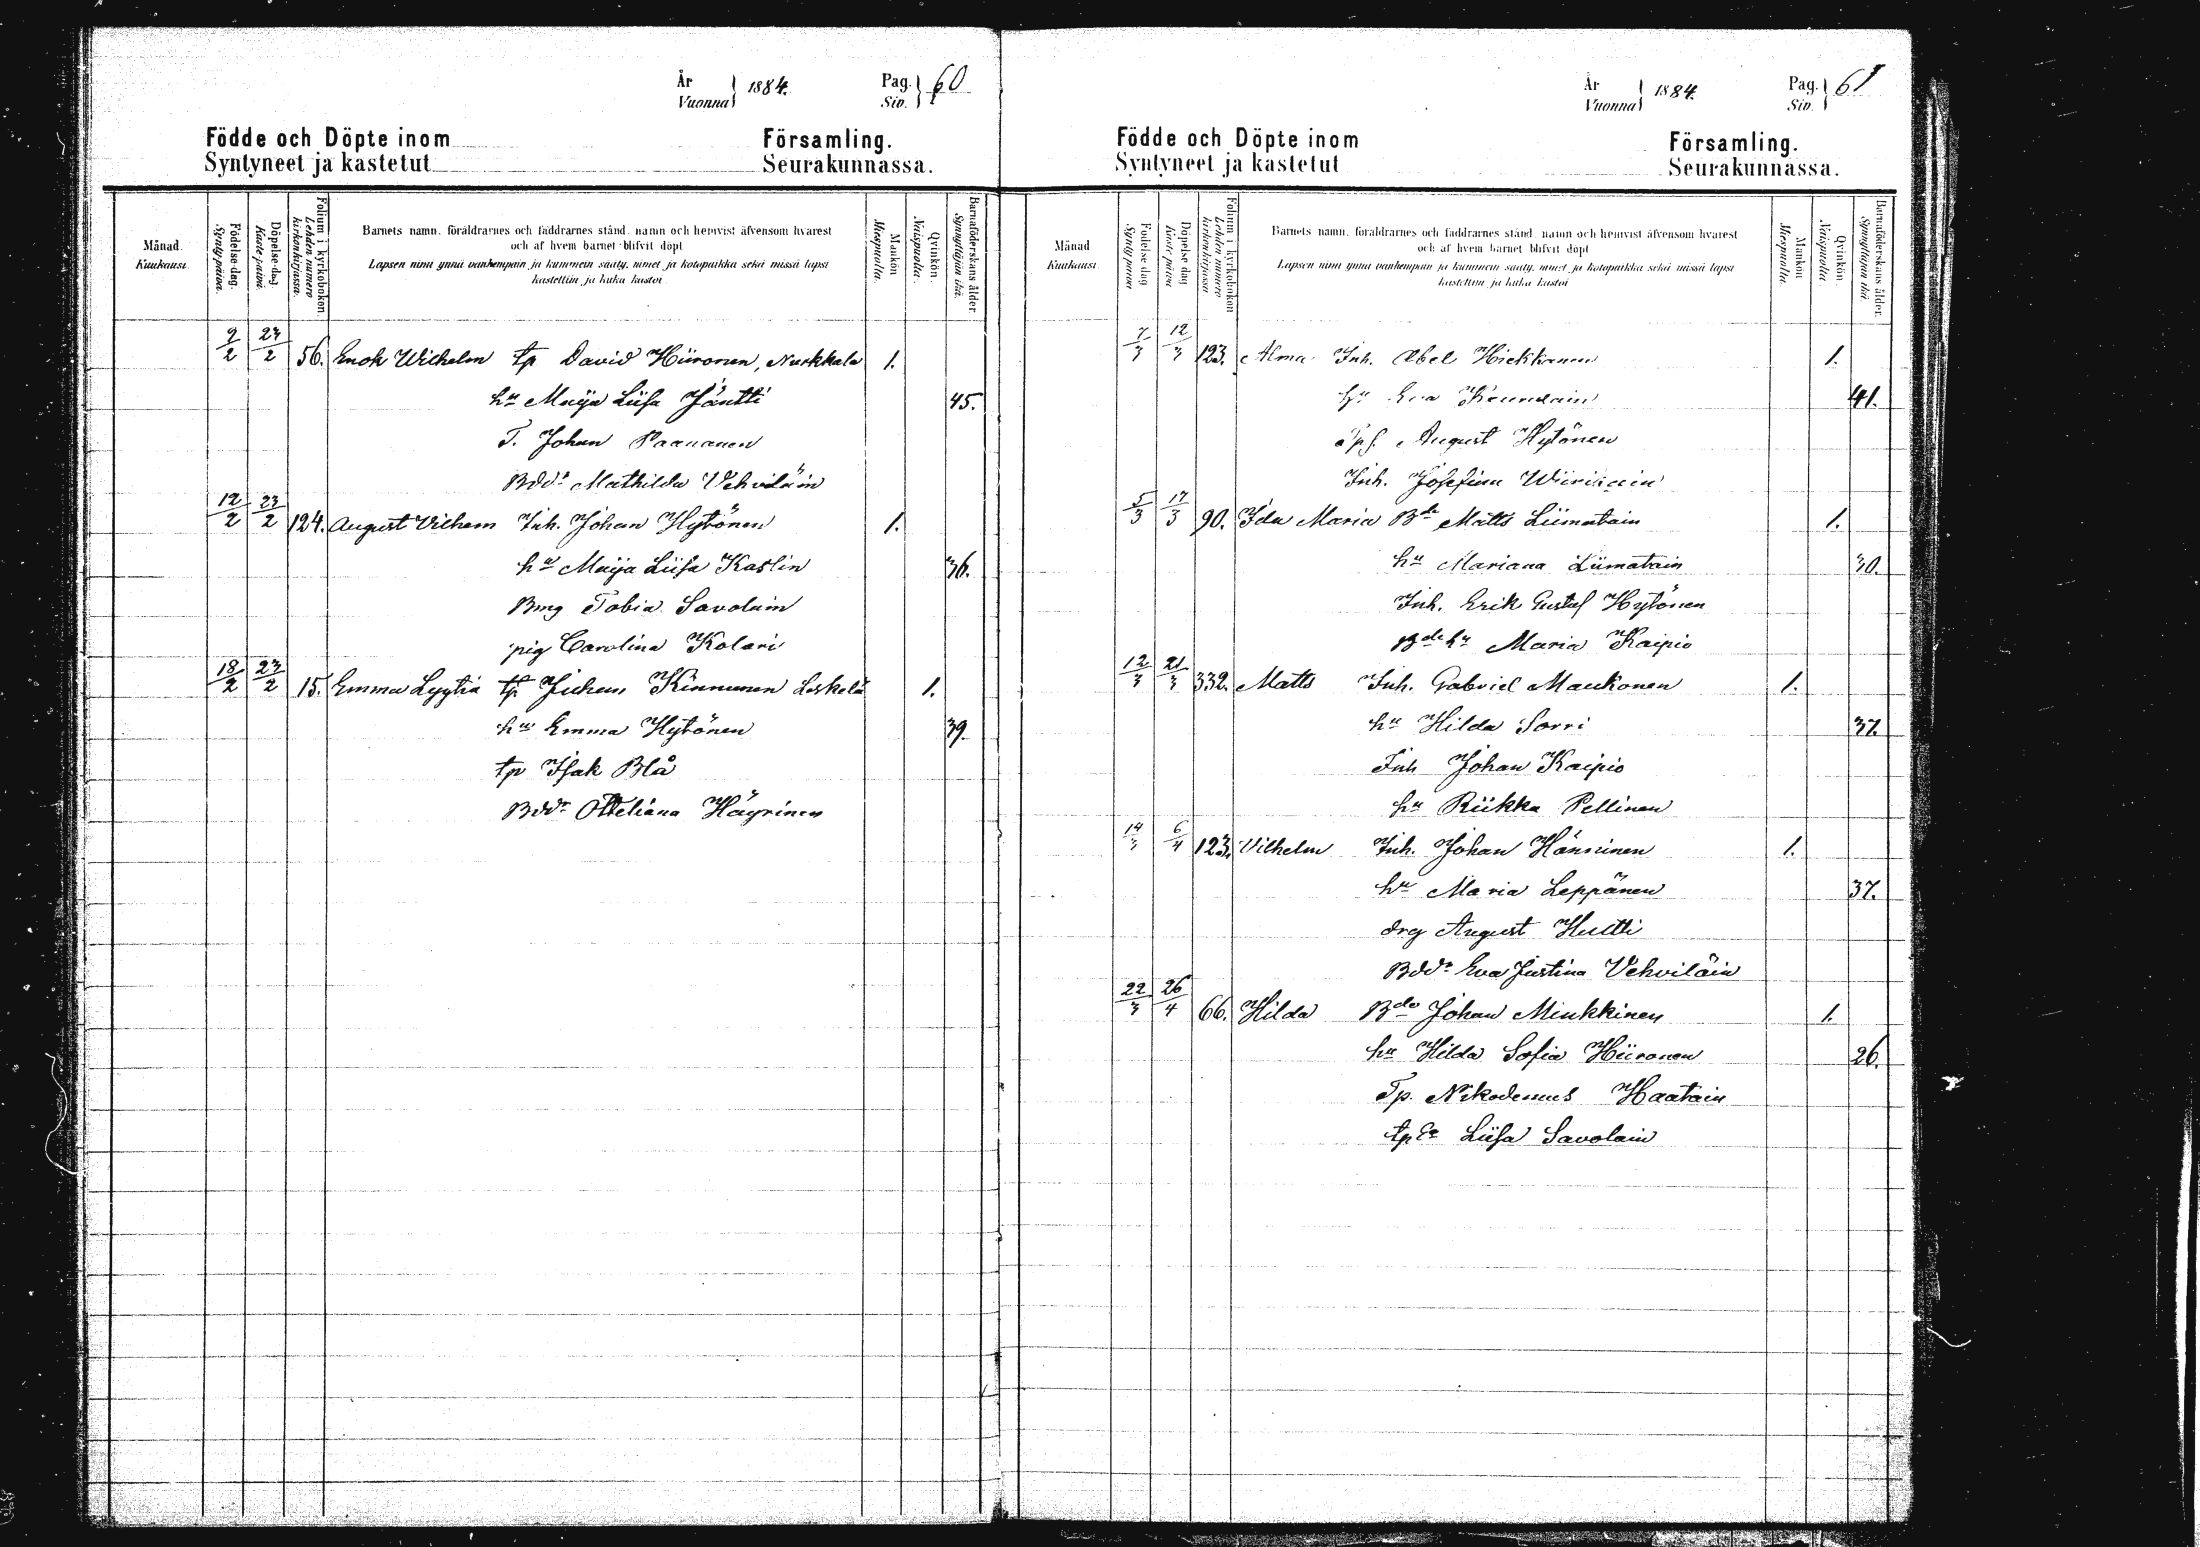 År
Vuonna } 1884.
Pag.
Siv. } 60
Födde och Döpte inom Församling.
Syntyneet ja kastetut Seurakunnassa.
Månad.
Kuukausi.
Födelse-dag.
Synty-päivä.
Döpelse-dag.
Kaste-päivä.
Folium i kyrkoboken
Lehden numero
kirkonkirjassa.
Barnets namn, föräldrarnes och faddrarnes stånd, namn och hemvist äfvensom hvarest
och af hvem barnet blifvit döpt
Lapsen nimi ynnä vanhempain ja kummein sääty, nimet ja kotopaikka sekä missä lapsi
kastettiin ja kuka kastoi
Mankön
Miespuolta.
Qvinkön.
Naispuolta.
Barnaföderskans ålder.
Synnyttäjän ikä.
9/2 23/2 56. Enok Wilhelm tp David Hiironen, Nurkkala 1.
hu Maija Liisa Jäntti 45.
T. Johan Paananen
Bddr Mathilda Vehviläin
12/2 23/2 124. August Vilhem Inh. Johan Hytönen 1.
hu Maija Liisa Kaslin 36.
Bmg Tobias Savolain
pig Carolina Kolari
18/2 23/2 15. Emma Lyytia tp Juhan Kinnunen Leskelä 1.
hu Emma Hytönen 39.
tp Isak Blå
Bddr Otteliana Häyrinen
År
Vuonna } 1884.
Pag.
Siv. } 61
Födde och Döpte inom Församling.
Syntyneet ja kastetut Seurakunnassa.
Månad
Kuukausi
Födelse-dag
Synty-päivä
Döpelse-dag
Kaste-päivä
Folium i kyrkoboken
Lehden numero
kirkonkirjassa
Barnets namn, föräldrarnes och faddrarnes stånd, namn och hemvist äfvensom hvarest
och af hvem barnet blifvit döpt
Lapsen nimi ynnä vanhempain ja kummein sääty, nimet ja kotopaikka sekä missä lapsi
kastettiin ja kuka kastoi
Mankön
Miespuolta.
Qvinkön.
Naispuolta.
Barnaföderskans ålder.
Synnyttäjän ikä.
7/3 12/3 123. Alma Inh. Abel Hickkanen 1.
hu Eva 41.
August Hytönen
Inh. Josefina
5/3 17/3 90. Ida Maria Bde Matts Liimatain 1.
hu Mariana Liimatain 30.
Inh. Erik Gustaf Hytönen
Bde hu Maria Kaipio
12/3 21/3 332. Matts Inh. Gabriel Maukonen 1.
hu Hilda Sorri 37.
Inh Johan Kaipio
hu Riikka Pellinen
14/3 6/4 123. Vilhelm Inh. Johan Hänninen 1.
hu Maria Leppänen 37.
drg August Hutti
Bddr Eva Justina Vehviläin
22/3 26/4 66. Hilda Bde Johan Minkkinen 1.
hu Hilda Sofia Hiironen 26.
Tp. Nikodemus Haatain
tp Liisa Savolain